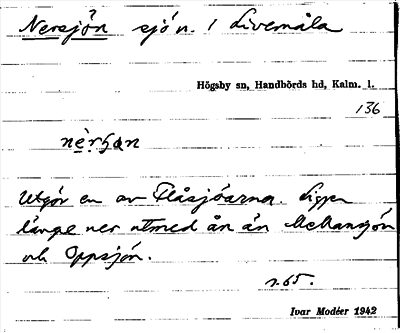 Nersjön sjö n. / Livemåla
Högsby sn, Handbörds hd, Kalm. l.
136
nèrʂɑn
Utgör en av Flåsjöarna. Ligger
längre ner utmed ån än Mellansjön
och Oppsjön.
n.65.
Ivar Modéer 1942